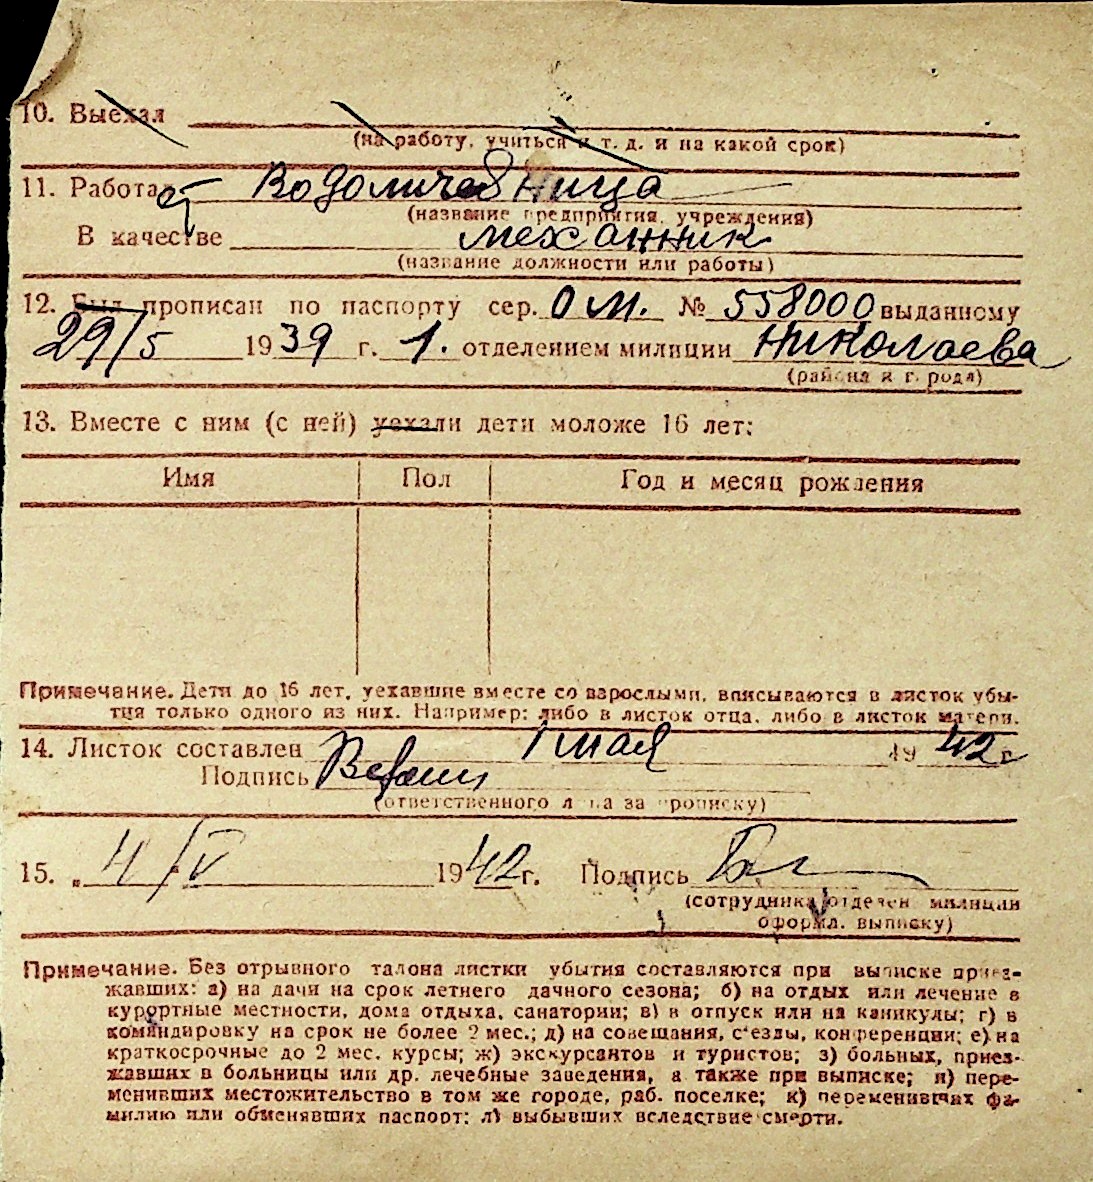 10. Выехал
(на работу, учиться и т. д. и на какой срок)
11. Работает Водоличебница
(название предприятия, учреждения)
В качестве механник
(название должности или работы)
12. Был прописан по паспорту сер. О М. № 558000 выданному
29/5 1939 г. 1. отделением милиции Николаева
(района и города)
13. Вместе с ним (с ней) уехали дети моложе 16 лет:
Имя Пол Год и месяц рождения
Примечание. Дети до 16 лет, уехавшие вместе со взрослыми, вписываются в листок убы-
тия только одного из них. Например: либо в листок отца, либо в листок матери.
14. Листок составлен 1 мая 1942 г
Подпись
(ответственного лица за прописку)
15. „ 4/V 1942 г. Подпись
(сотрудника отделен милиции
оформл. выписку)
Примечание. Без отрывного талона листки убытия составляются при выписке приез-
жавших: а) на дачи на срок летнего дачного сезона; б) на отдых или лечение в
курортные местности, дома отдыха, санатории; в) в отпуск или на каникулы; г) в
командировку на срок не более 2 мес.; д) на совещания, с'езды, конференции; е) на
краткосрочные до 2 мес. курсы; ж) экскурсантов и туристов; з) больных, приез-
жавших в больницы или др. лечебные заведения, а также при выписке; и) пере-
менивших местожительство в том же городе, раб. поселке; к) переменивших фа-
милию или обменявших паспорт; л) выбывших вследствие смерти.